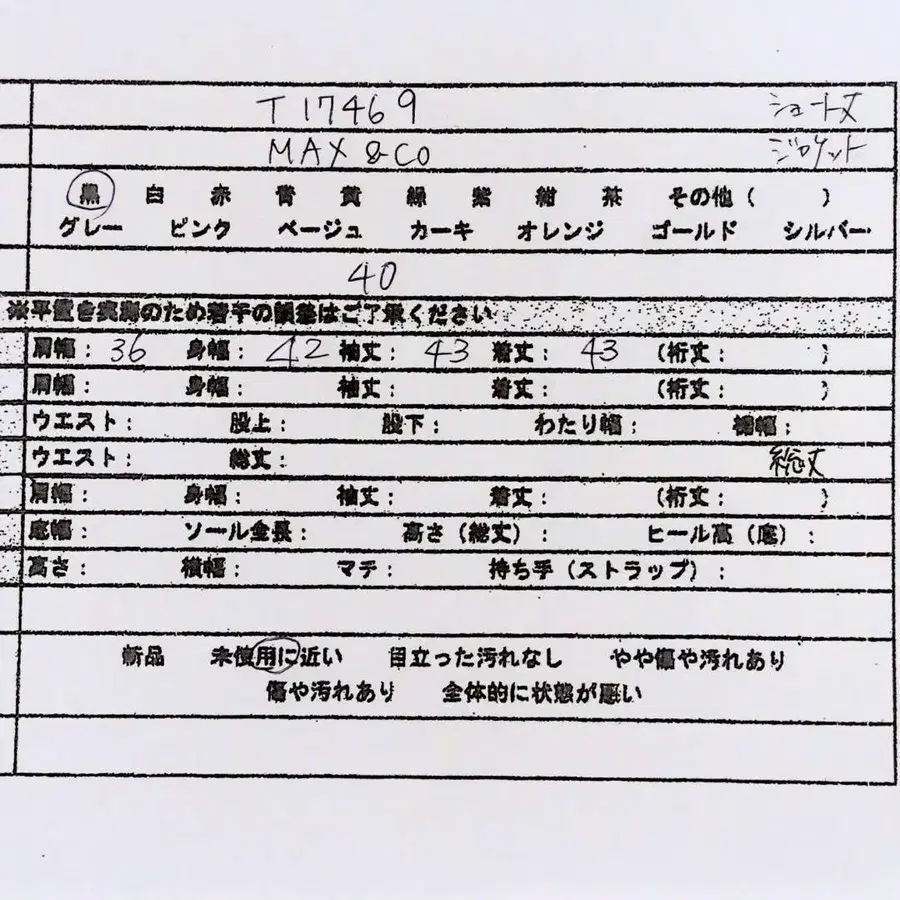 T17469 ショート丈
MAX & CO ジャケット
黒 白 赤 青 黄 緑 紫 紺 茶 その他（ ）
グレー ピンク ベージュ カーキ オレンジ ゴールド シルバー
40
※平置き実測のため若干の誤差はご了承ください
肩幅： 36 身幅： 42 袖丈： 43 着丈： 43 （裄丈： ）
肩幅： 身幅： 袖丈： 着丈： （裄丈： ）
ウエスト： 股上： 股下： わたり幅： 裾幅：
ウエスト： 総丈： 総丈
肩幅： 身幅： 袖丈： 着丈： （裄丈： ）
底幅： ソール全長： 高さ（総丈）： ヒール高（底）：
高さ： 横幅： マチ： 持ち手（ストラップ）：
新品 未使用に近い 目立った汚れなし やや傷や汚れあり
傷や汚れあり 全体的に状態が悪い